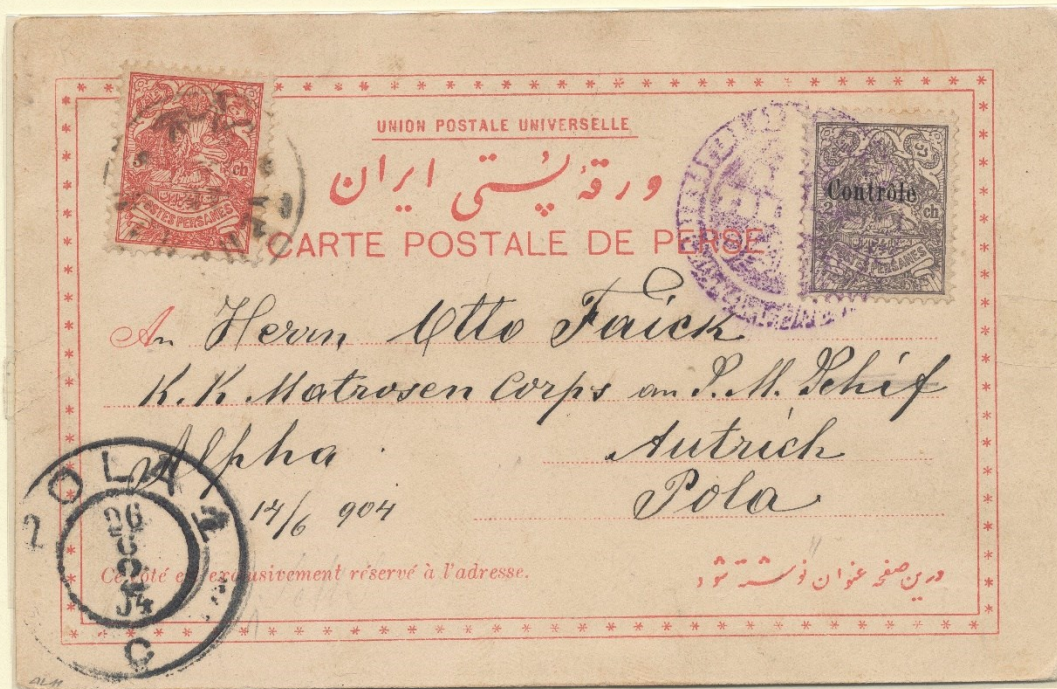 UNION POSTALE UNIVERSELLE
ورقهٔ پُستی ایران
CARTE POSTALE DE PERSE
ch
POSTES PERSANES
Contrôle
ch
POSTES PERSANES
An Herrn Otto Faick
K. K. Matrosen Corps an S. M. Schif
Alpha Autrich
14/6 904 Pola
Ce côté est exclusivement réservé à l'adresse.
درین صفحه عنوان نوشته شود
POLA 1
26
04
C